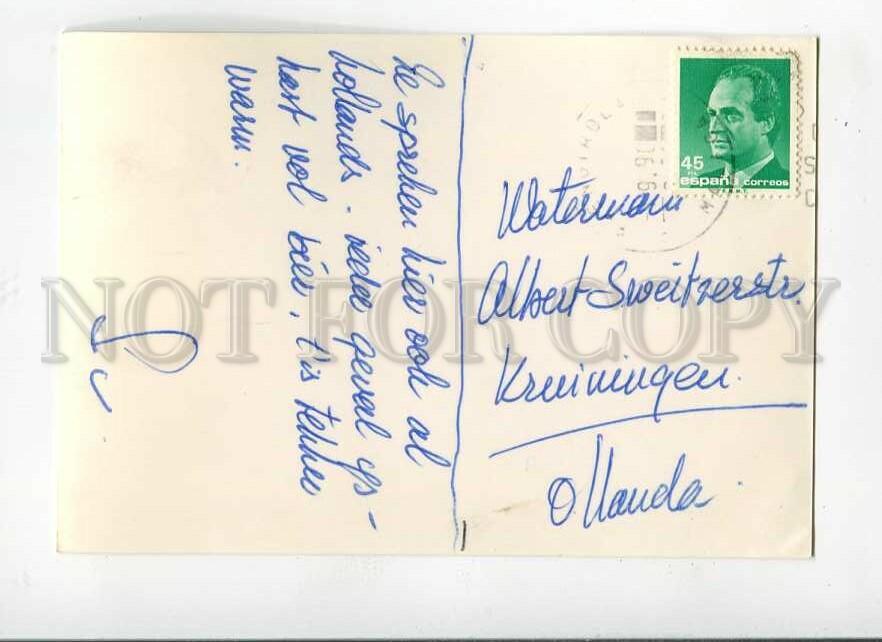 Ze spreken hier ook al
hollands. ieder geval ijs-
kast vol bier, t'is lekker
warm.
45
PTA
españa correos
Watermann
Albert Sweitzerstr.
Kruiningen.
Ollanda.
NOT FOR COPY